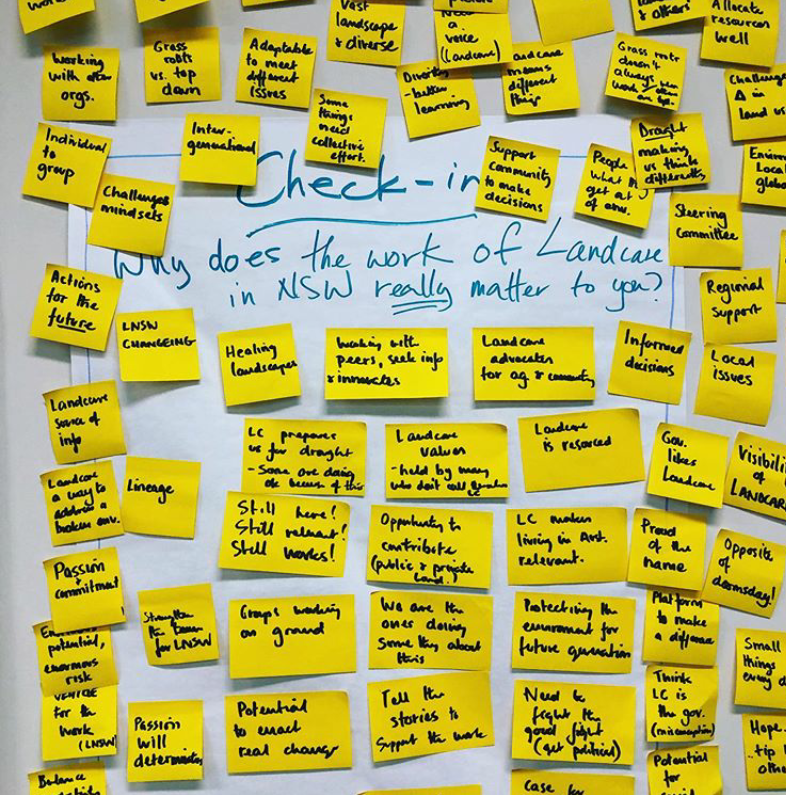 works
landscape
& diverse
a
voice
(Landcare)
& others
Allocate
resources
well
Working
with other
orgs.
Grass
roots
vs. top
down
Adaptable
to meet
different
issues
Diversity
- better
learning
Landcare
means
different
things
Grass roots
doesn't
always
work
Challenge
Δ in
land us
Some
things
need
collective
effort.
Individual
to
group
Inter-
generational
Challenges
mindsets
Support
community
to make
decisions
People
what
get out
of env.
Drought
making
us think
differently
Environ
Local
globa
Steering
Committee
Check-in
Why does the work of Landcare
in NSW really matter to you?
Actions
for the
future
LNSW
CHANGEING
Healing
landscapes
Working with
peers, seek info
& innovates
Landcare
advocates
for ag & community
Informed
decisions
Regional
Support
Local
issues
Landcare
source of
info
LC prepares
us for drought
- Some are doing
ok because of this
Landcare
values
- held by many
who don't call themselves
LC
Landcare
is resourced
Gov.
likes
Landcare
Visibili
of
LANDCAR
Landcare
a way to
address a
broken env.
Lineage
Still here!
Still relevant!
Still works!
Opportunity to
contribute
(public & private
land.)
LC makes
living in Aust.
relevant.
Proud
of the
name
Opposite
of
doomsday!
Passion
+
commitment
Strengthen
the team
for LNSW
Groups working
on ground
We are the
ones doing
something about
this
Protecting the
environment for
future generation
Platform
to make
a difference
potential,
enormous
risk
Small
things
every d
VEHICLE
for the
work
(LNSW)
Passion
will
determination
Potential
to enact
real change
Tell the
stories to
support the work
Need to
fight the
good fight
(get political)
Think
LC is
the gov.
(misconception)
Hope.
tip
othe
Balance
Case by
Potential
for